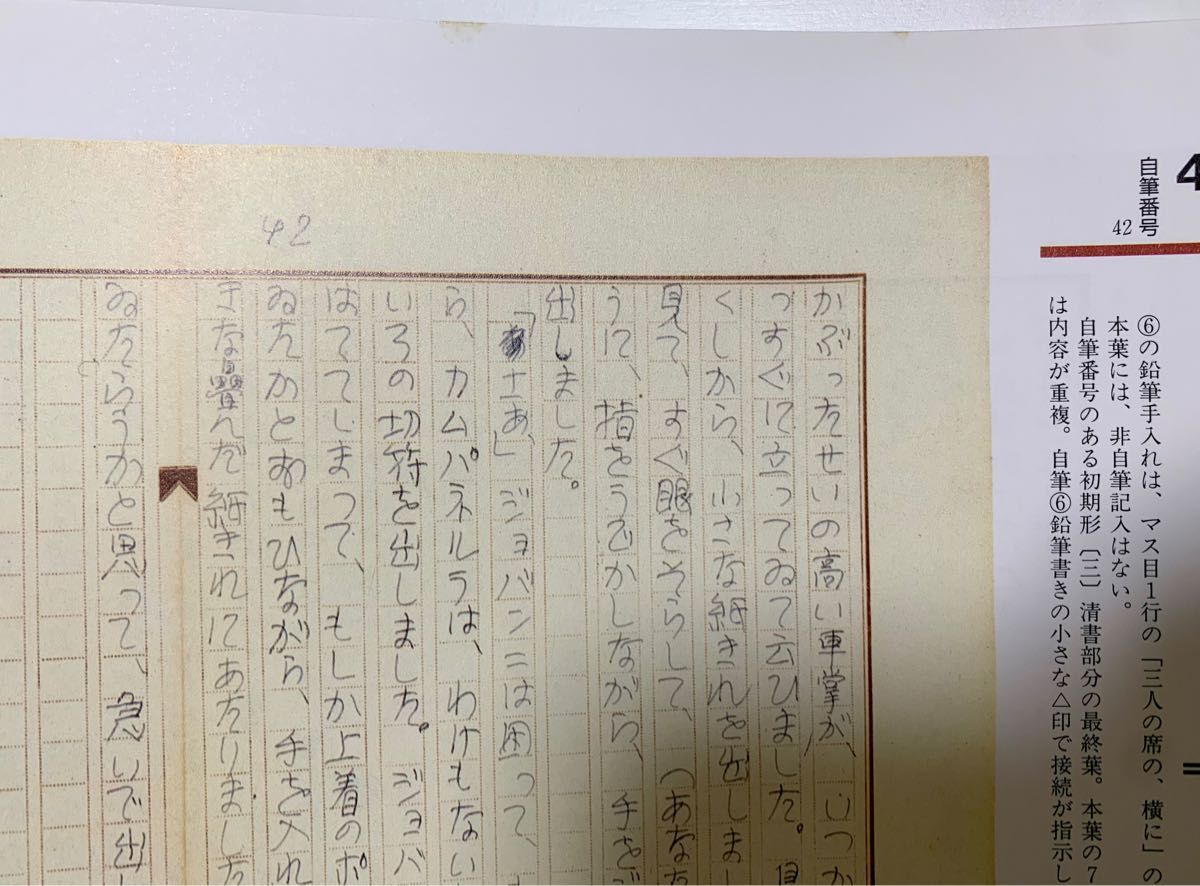 4
自筆番号
42
⑥の鉛筆手入れは、マス目1行の「三人の席の、横に」の
本葉には、非自筆記入はない。
自筆番号のある初期形〔三〕清書部分の最終葉。本葉の7
は内容が重複。自筆⑥鉛筆書きの小さな△印で接続が指示し
42
かぶったせいの高い車掌が、いつか
っすぐに立ってゐて云ひました。
くしから、小さな紙きれを出しま
見て、すぐ眼をそらして、(あなた
うに、指をうごかしながら、手を
出しました。
「さあ、」ジョバンニは困って、
ら、カムパネルラは、わけもない
いろの切符を出しました。ジョバ
はててしまって、もしか上着のポ
ゐたかとおもひながら、手を入れ
きな畳んだ紙きれにあたりました
ゐたらうかと思って、急いで出し